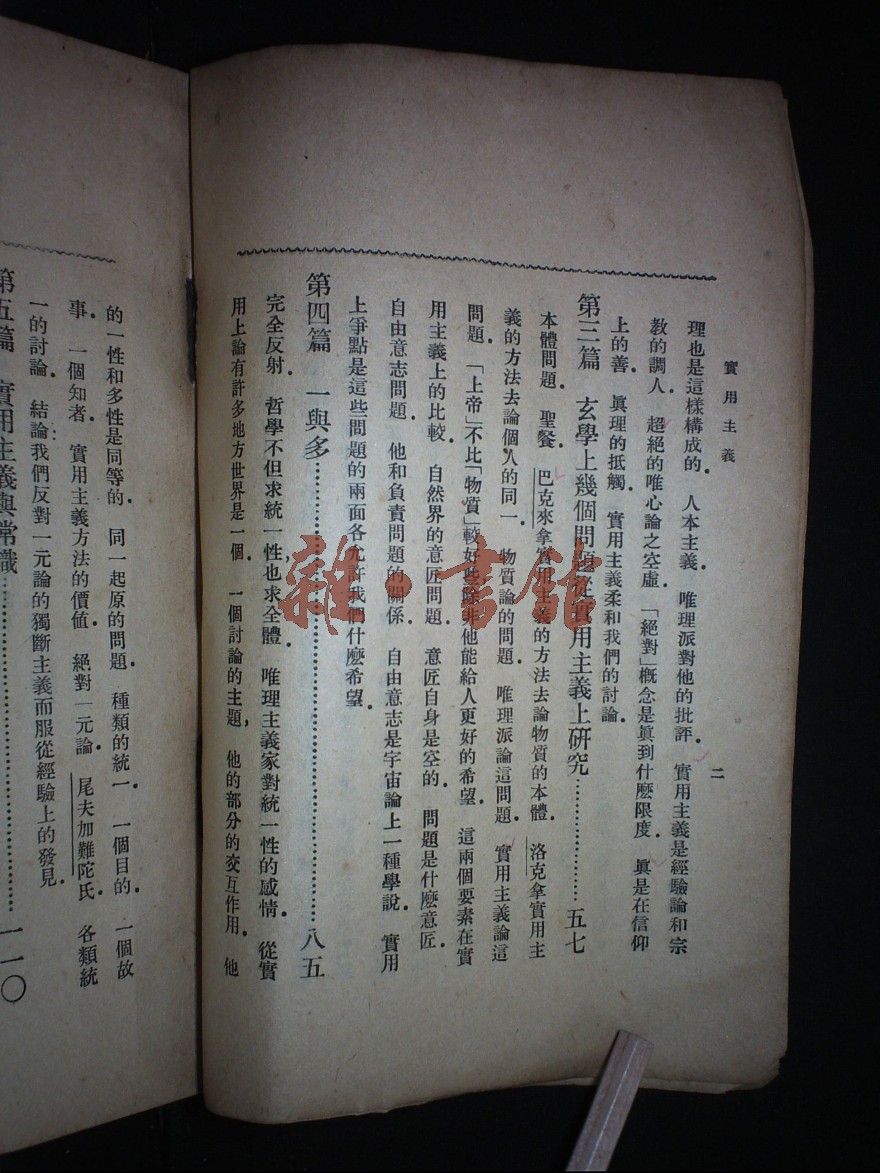 實用主義
二
理也是這樣構成的．人本主義．唯理派對他的批評．實用主義是經驗論和宗
教的調人．超絕的唯心論之空虛．「絕對」概念是眞到什麼限度．眞是在信仰
上的善．眞理的抵觸．實用主義柔和我們的討論．
第三篇　玄學上幾個問題從實用主義上研究………………五七
本體問題．聖餐．巴克來拿實用主義的方法去論物質的本體．洛克拿實用主
義的方法去論個人的同一．物質論的問題．唯理派論這問題．實用主義論這
問題．「上帝」不比「物質」較好些，除非他能給人更好的希望．這兩個要素在實
用主義上的比較．自然界的意匠問題．意匠自身是空的．問題是什麼意匠．
自由意志問題．他和負責問題的關係．自由意志是宇宙論上一種學說．實用
上爭點是這些問題的兩面各允許我們什麼希望．
第四篇　一與多………………八五
完全反射．哲學不但求統一性，也求全體．唯理主義家對統一性的感情．從實
用上論有許多地方世界是一個．一個討論的主題，他的部分的交互作用．他
的一性和多性是同等的．同一起原的問題．種類的統一．一個目的．一個故
事．一個知者．實用主義方法的價值．絕對一元論．尾夫加難陀氏．各類統
一的討論．結論我們反對一元論的獨斷主義而服從經驗上的發見．
第五篇　實用主義與常識………………一一〇
雜·書館